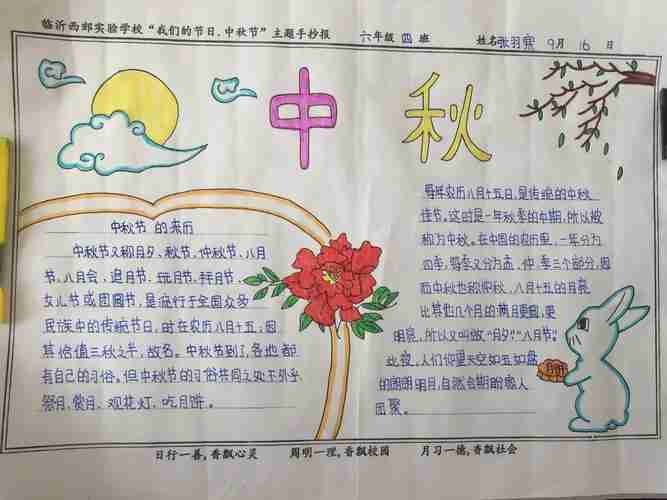 临沂西郊实验学校“我们的节日.中秋节”主题手抄报 六年级 四 班 姓名 张羽寒 9月 16 日
中秋
中秋节 的来历
中秋节又称月夕、秋节、仲秋节、八月
节、八月会、追月节、玩月节、拜月节、
女儿节或团圆节,是流行于全国众多
民族中的传统节日,时在农历八月十五;因
其恰值三秋之半,故名。中秋节到了,各地都
有自己的习俗。但中秋节的习俗共同之处不外乎
祭月、赏月、观花灯、吃月饼。
每年农历八月十五日,是传统的中秋
佳节。这时是一年秋季的中期,所以被
称为中秋。在中国的农历里,一年分为
四季,每季又分为孟、仲、季三个部分,因
而中秋也称仲秋。八月十五的月亮
比其他几个月的满月更圆,更
明亮,所以又叫做“月夕”“八月节”。
此夜,人们仰望天空如玉如盘
的朗朗明月,自然会期盼家人
团聚。
月饼
日行一善,香飘心灵 周明一理,香飘校园 月习一德,香飘社会